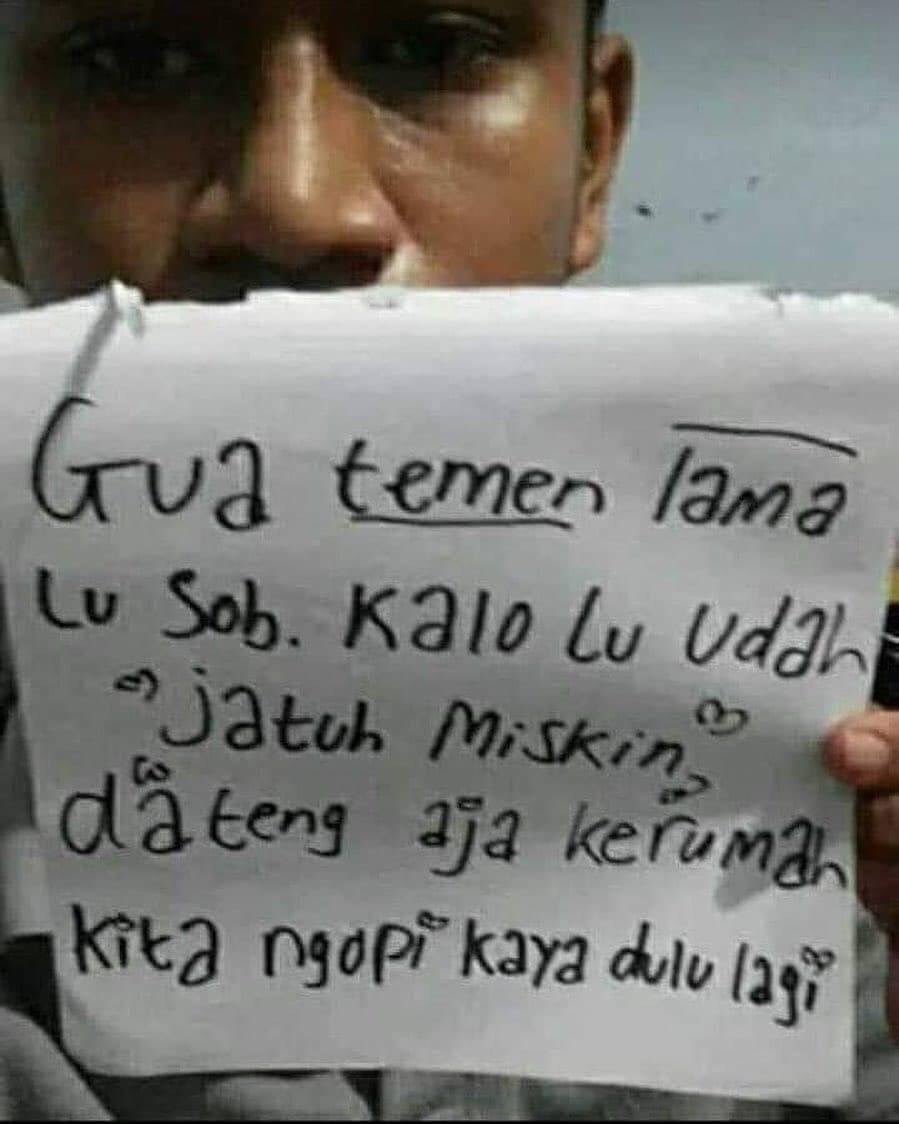 Gua temen lama
Lu Sob. Kalo Lu Udah
"jatuh Miskin"
dateng aja kerumah
kita ngopi kaya dulu lagi